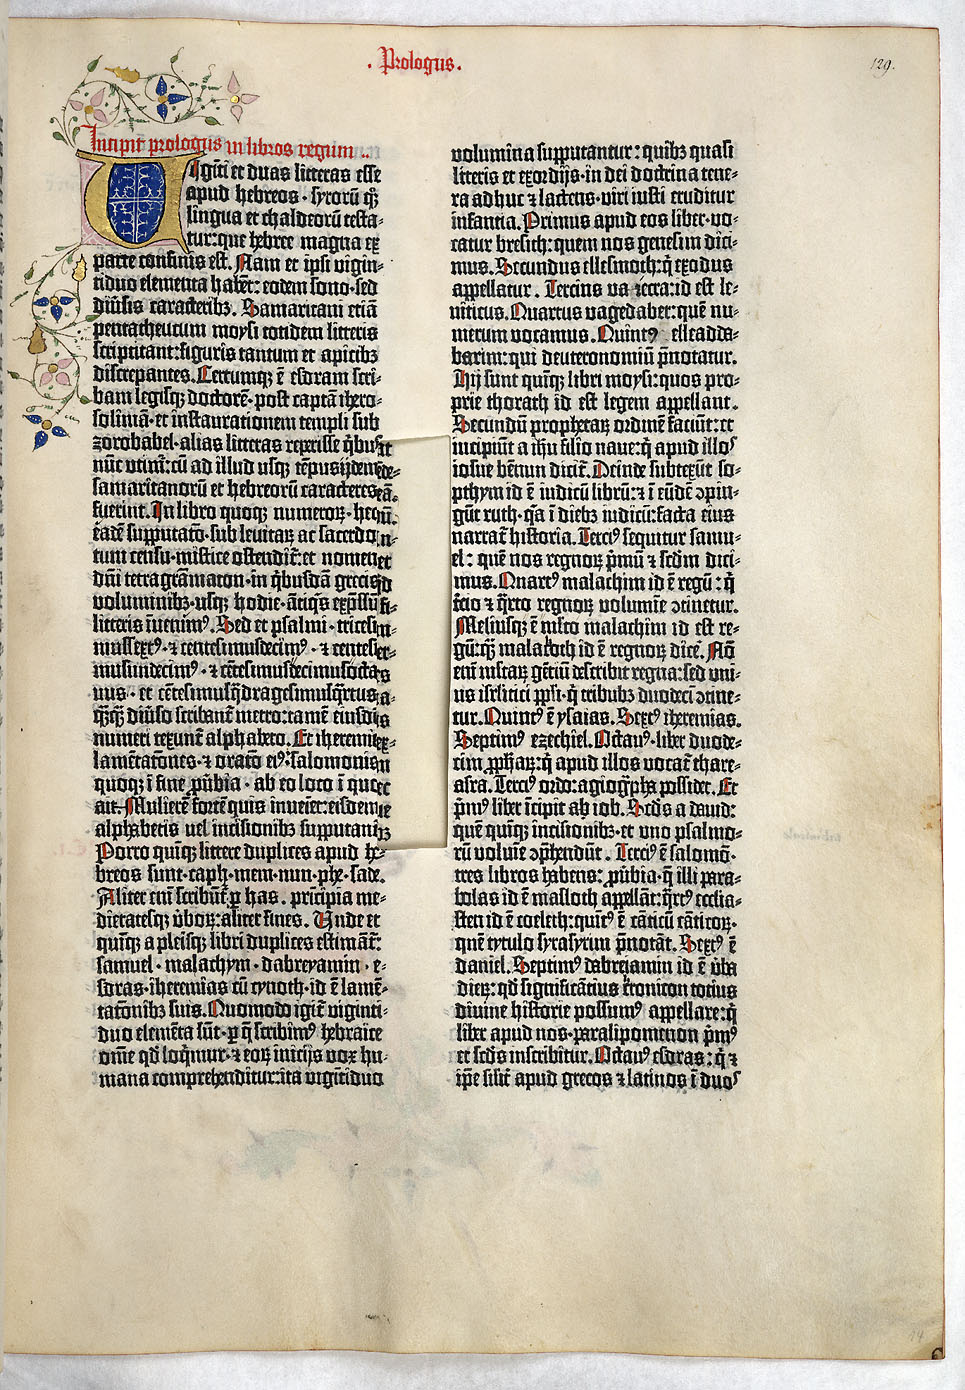 . Prologus .
129.
Incipit prologus in libros regum ..
Vigĩti et duas litteras esse
apud hebreos · syrorũ q̃ꝫ
lingua et chaldeorũ testa-
tur: que hebree magna ex
parte confinis est. Nam et ipsi vigin-
tiduo elementa habẽt: eodem sono · sed
diũsis caracteribꝫ. Samaritani etiã
pentatheucum moysi totidem litteris
scriptitant: figuris tantum et apicibꝫ
discrepantes. Certumqꝫ ẽ esdram scri-
bam legisqꝫ doctorẽ · post captã ihero-
solimã · et instaurationem templi sub
zorobabel · alias litteras repperisse
nũc utim̃: cũ ad illud usqꝫ tẽpus
samaritanorũ et hebreorũ caracteres
fuerint. In libro quoqꝫ numeroꝝ · hec
eadẽ supputatõ · sub levitaꝝ ac sacerdo
tum censu · mistice ostendit̃. et nomen
dñi tetragrãmaton · in q̃busdã grecis
voluminibꝫ · usqꝫ hodie · ãtiq̃s exp̃ssũ
litteris ĩvenimꝰ. Sed et psalmi · tricesi
mussextꝰ · ⁊ centesimusdecimꝰ · ⁊ centes
musundecimꝰ · ⁊ cẽtesimusdecimusocta
uus · et cẽtesimusq̃dragesimusq̃rtus
q̃ꝫq̃ꝫ diũso scribant̃ metro: tamẽ eiusdẽ
numeri texunt̃ alphabeto. Et iheremie
lamẽtatões · ⁊ oratõ eiꝰ: salomonis
quoqꝫ ĩ fine ꝓũbia · ab eo loco ĩ quo
ait. Mulierẽ fortẽ quis inveniet: eisdem
alphabetis uel incisionibꝫ supputant̃
Porro quĩqꝫ littere duplices apud he-
breos sunt · caph · mem · nun · phe · sade.
Aliter eni scribũt̃ ꝑ has. prĩcipia me-
dietatesqꝫ ũboꝝ: aliter fines. Unde et
quĩqꝫ a plerisqꝫ libri duplices estimãt̃:
samuel · malachym · dabreyamin · e-
sdras · iheremias cũ cynoth · id ẽ lamẽ-
tatõnibꝫ suis. Quomodo igit̃ viginti-
duo elemẽta sũt · ꝑ q̃ scribimꝰ hebraice
om̃e qd̃ loq̃mur · ⁊ eoꝝ inicijs vox hu-
mana comprehenditur: ita vigĩtiduo
volumina supputantur: quibꝫ quasi
literis et exordijs · in dei doctrina tene-
ra adhuc ⁊ lactens · viri iusti eruditur
infantia. Primus apud eos liber · vo-
catur bresich: quem nos genesim dici-
mus. Secundus ellesmoth: q̃ exodus
appellatur. Tercius va ẓecra: id est le-
viticus. Quartus vagedaber: quẽ nu-
merum vocamus. Quintꝰ elleadda-
barim: qui deuteronomiũ p̃notatur.
Hij sunt quĩqꝫ libri moysi: quos pro-
prie thorath id est legem appellant.
Secundũ prophetaꝝ ordinẽ faciũt: et
incipiũt a ihũ filio nave: q̃ apud illoˢ
iosue bẽnun dicit̃. Deinde subtexũt so-
pthym id ẽ iudicũ librũ: ⁊ ĩ eũdẽ ↄpin-
gũt ruth · q̃a ĩ diebꝫ iudicũ: facta eius
narrat̃ historia. Terciꝰ sequitur samu-
el: quẽ nos regnoꝝ p̃mũ ⁊ scd̃m dici-
mus. Quartꝰ malachim id ẽ regũ: q̃
t̃cio ⁊ q̃rto regnoꝝ volumĩe ↄtinetur.
Meliusqꝫ ẽ m̃lto malachim id est re-
gũ: q̃ꝫ malakoth id ẽ regnoꝝ dicẽ. Nõ
eni m̃ltaꝝ gẽtiũ describit regna: sed uni-
us isrl̃itici pp̃li · q̃ tribubꝫ duodecĩ ↄtine-
tur. Quintꝰ ẽ ysaias. Sextꝰ iheremias.
Septimꝰ ezechiel. Octauꝰ · liber duode-
cim ꝓph̃aꝝ: q̃ apud illos vocat̃ thare-
asra. Terciꝰ ordo: agiogr̃pha possidet. Et
p̃mꝰ liber ĩcipit ab iob. Scd̃s a david:
quẽ quĩqꝫ incisionibꝫ · et uno psalmo-
rũ volumĩe ↄp̃hendũt. Terciꝰ ẽ salomõ ·
tres libros habens: ꝓũbia · q̃ illi para-
bolas id ẽ masloth appellãt: q̃rtꝰ ecclia-
sten id ẽ coeleth: quĩtꝰ ẽ cãticũ cãticoꝝ ·
quẽ tytulo syrasyrim p̃notãt. Sextꝰ ẽ
daniel. Septimꝰ dabreiamin id ẽ ũba
dieꝝ: qd̃ significãtius cronicon totius
divine historie possumꝰ appellare: q̃
liber apud nos · paralipomenon p̃mꝰ
et scd̃s inscribitur. Octauꝰ esdras: q̃ ⁊
ip̃e sil̃it̃ apud grecos ⁊ latinos ĩ duoˢ